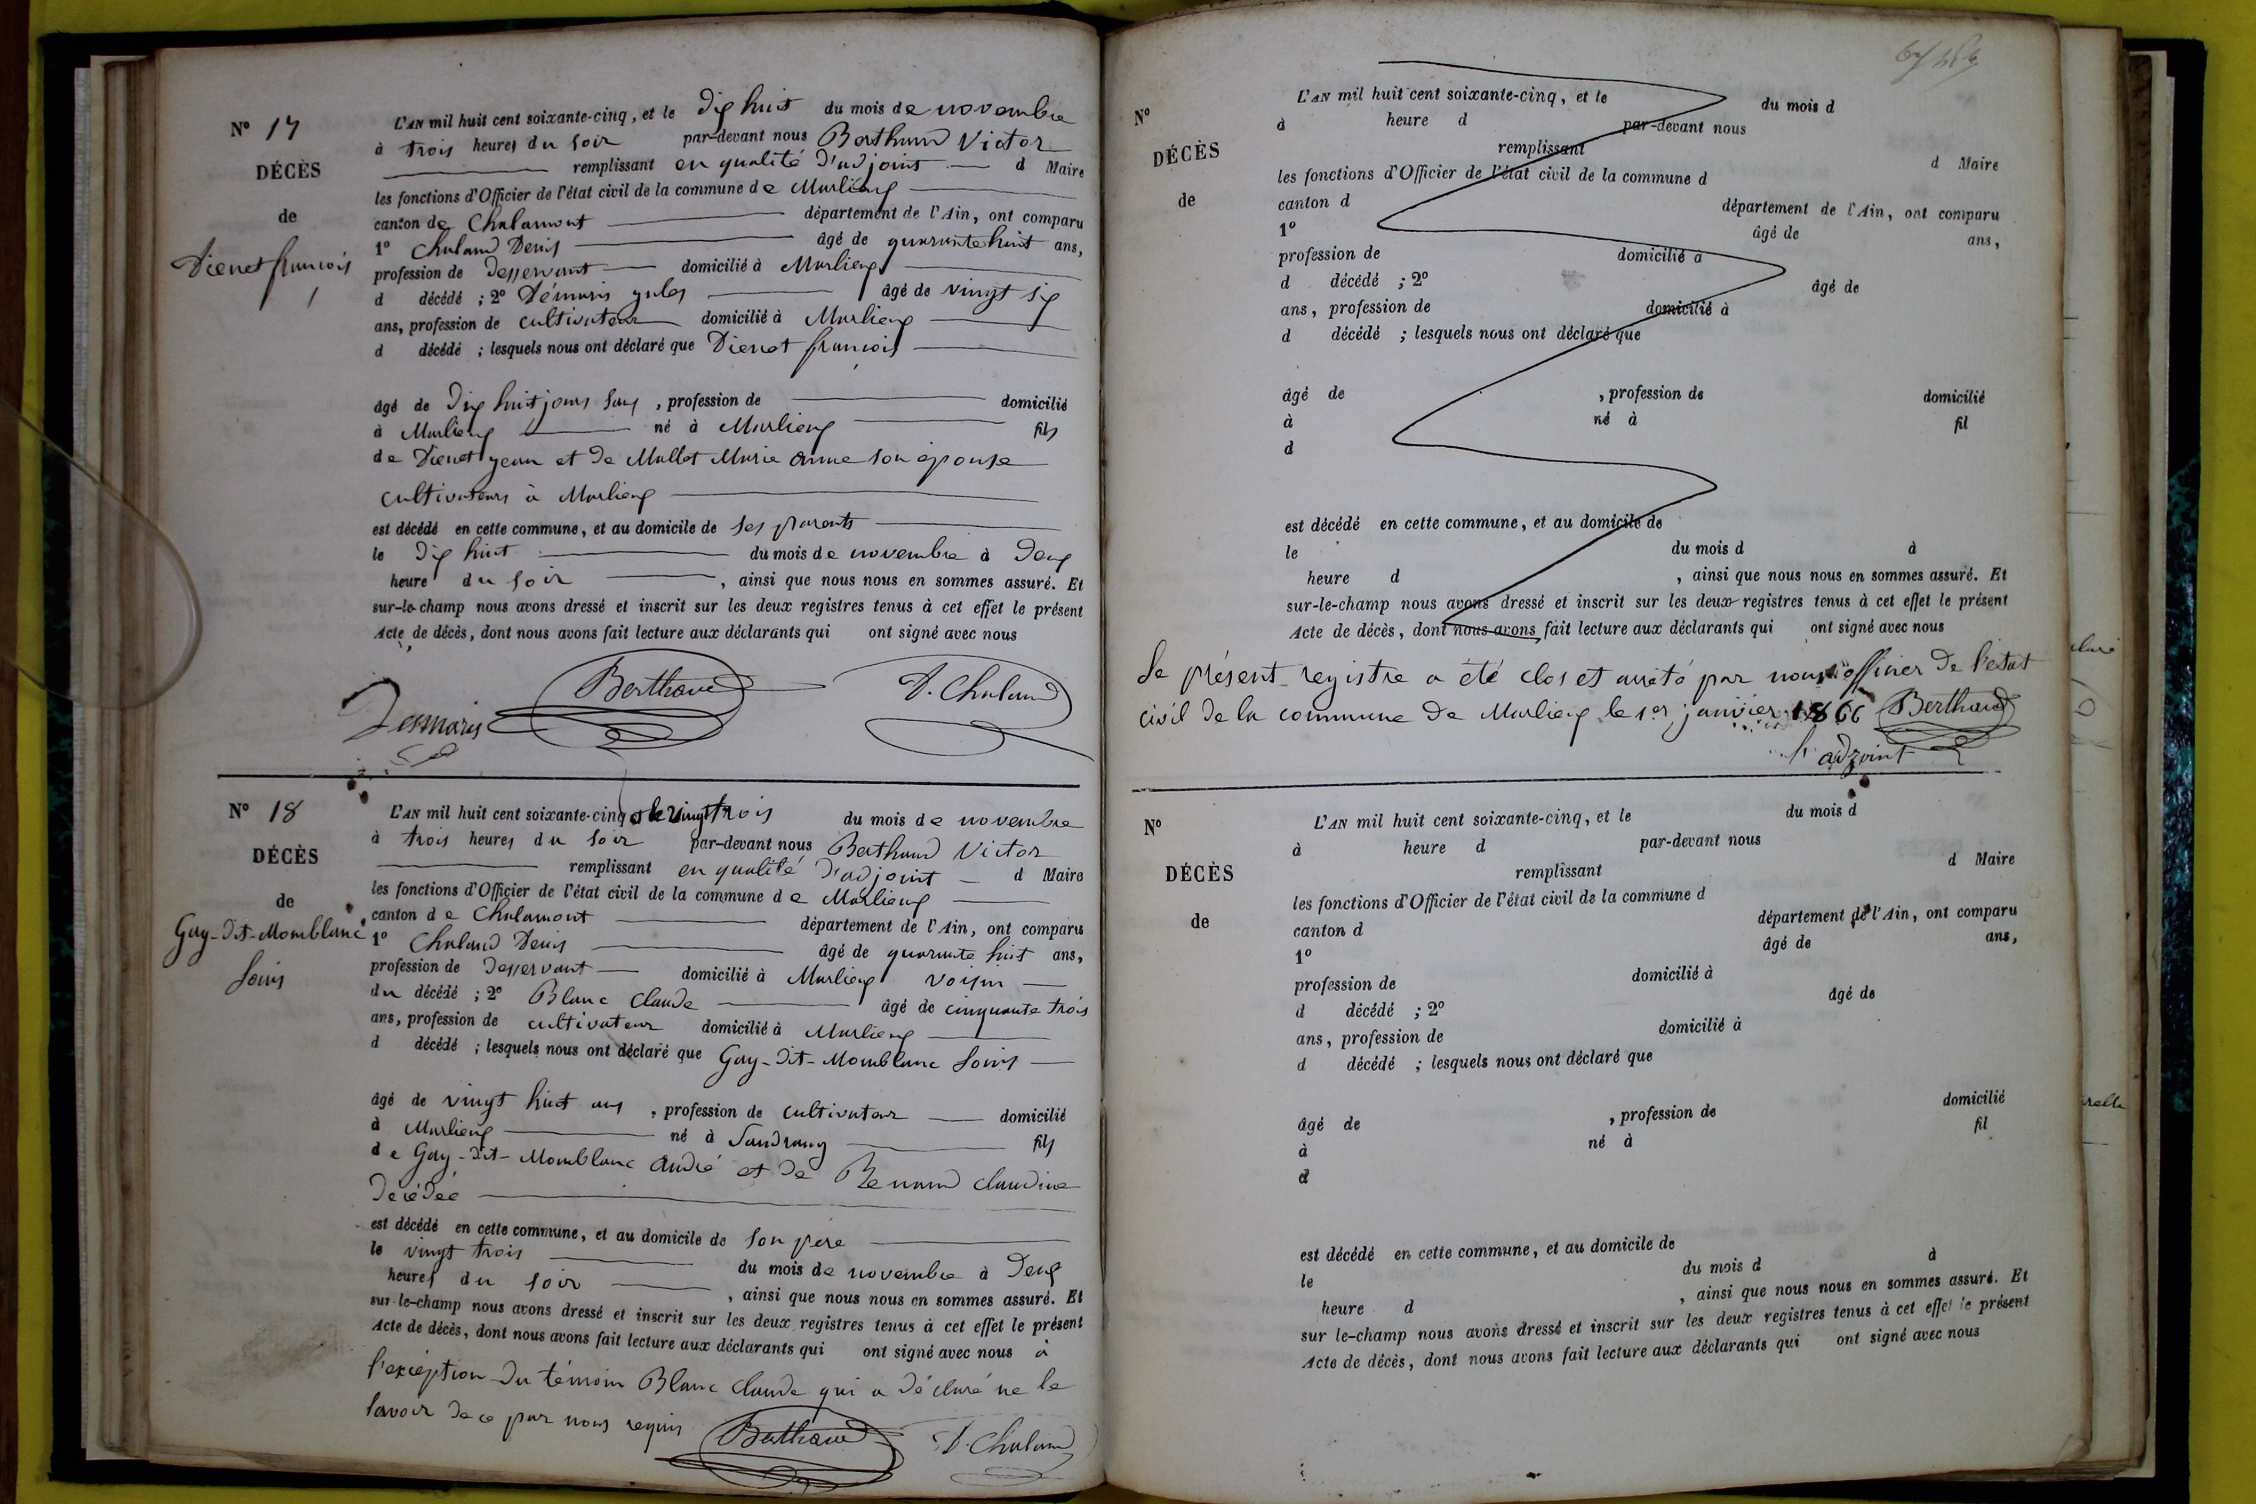 N° 17
DÉCÈS
de
Dienet françois
L'AN mil huit cent soixante-cinq, et le dix huit du mois de novembre
à trois heures du soir par-devant nous Berthaud Victor
remplissant en qualité d'adjoint d Maire
les fonctions d'Officier de l'état civil de la commune de Marlieux
canton de Chalamont département de l'Ain, ont comparu
1° Chaland Denis âgé de quarante huit ans,
profession de desservant domicilié à Marlieux
d décédé ; 2° Démaris jules âgé de vingt six
ans, profession de cultivateur domicilié à Marlieux
d décédé ; lesquels nous ont déclaré que Dienet françois
âgé de dix huit jours sans , profession de domicilié
à Marlieux né à Marlieux fils
de Dienet jean et de Mallet Marie anne son épouse
cultivateurs à Marlieux
est décédé en cette commune, et au domicile de ses parents
le dix huit du mois de novembre à deux
heure du soir , ainsi que nous nous en sommes assuré. Et
sur-le-champ nous avons dressé et inscrit sur les deux registres tenus à cet effet le présent
Acte de décès, dont nous avons fait lecture aux déclarants qui ont signé avec nous
Desmaris Berthaud D. Chaland
N° 18
DÉCÈS
de
Gay-dit-Momblanc
Louis
L'AN mil huit cent soixante-cinq et le vingt trois du mois de novembre
à trois heures du soir par-devant nous Berthaud Victor
remplissant en qualité d'adjoint d Maire
les fonctions d'Officier de l'état civil de la commune de Marlieux
canton de Chalamont département de l'Ain, ont comparu
1° Chaland Denis âgé de quarante huit ans,
profession de desservant domicilié à Marlieux voisin
du décédé ; 2° Blanc claude âgé de cinquante trois
ans, profession de cultivateur domicilié à Marlieux
d décédé ; lesquels nous ont déclaré que Gay-dit-Momblanc Louis
âgé de vingt huit ans , profession de cultivateur domicilié
à Marlieux né à Sandrans fils
de Gay-dit-Momblanc andré et de Renaud claudine
décédée
est décédé en cette commune, et au domicile de son père
le vingt trois du mois de novembre à deux
heures du soir , ainsi que nous nous en sommes assuré. Et
sur-le-champ nous avons dressé et inscrit sur les deux registres tenus à cet effet le présent
Acte de décès, dont nous avons fait lecture aux déclarants qui ont signé avec nous à
l'exception du témoin Blanc claude qui a déclaré ne le
savoir de ce par nous requis Berthaud D. Chaland
N°
DÉCÈS
de
L'AN mil huit cent soixante-cinq, et le du mois d
à heure d par-devant nous
remplissant d Maire
les fonctions d'Officier de l'état civil de la commune d
canton d département de l'Ain, ont comparu
1° âgé de ans,
profession de domicilié à
d décédé ; 2° âgé de
ans, profession de domicilié à
d décédé ; lesquels nous ont déclaré que
âgé de , profession de domicilié
à né à fil
d
est décédé en cette commune, et au domicile de
le du mois d à
heure d , ainsi que nous nous en sommes assuré. Et
sur-le-champ nous avons dressé et inscrit sur les deux registres tenus à cet effet le présent
Acte de décès, dont nous avons fait lecture aux déclarants qui ont signé avec nous
Le présent registre a été clos et arreté par nous officier de l'état
civil de la commune de Marlieux le 1er janvier 1866 Berthaud
l'adjoint
N°
DÉCÈS
de
L'AN mil huit cent soixante-cinq, et le du mois d
à heure d par-devant nous
remplissant d Maire
les fonctions d'Officier de l'état civil de la commune d
canton d département de l'Ain, ont comparu
1° âgé de ans,
profession de domicilié à
d décédé ; 2° âgé de
ans, profession de domicilié à
d décédé ; lesquels nous ont déclaré que
âgé de , profession de domicilié
à né à fil
d
est décédé en cette commune, et au domicile de
le du mois d à
heure d , ainsi que nous nous en sommes assuré. Et
sur le-champ nous avons dressé et inscrit sur les deux registres tenus à cet effet le présent
Acte de décès, dont nous avons fait lecture aux déclarants qui ont signé avec nous